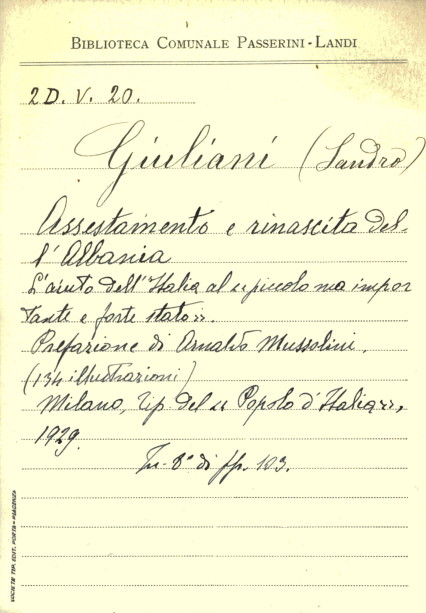 BIBLIOTECA COMUNALE PASSERINI-LANDI
2D. V. 20.
Giuliani (Sandro)
Assestamento e rinascita del-
l'Albania
L'aiuto dell'Italia al «piccolo ma impor
tante e forte stato».
Prefazione di Arnaldo Mussolini.
(134 illustrazioni)
Milano, Tip. del «Popolo d'Italia»,
1929.
In-8° di pp. 103.
SOCIETÀ TIP. EDIT. PORTA - PIACENZA